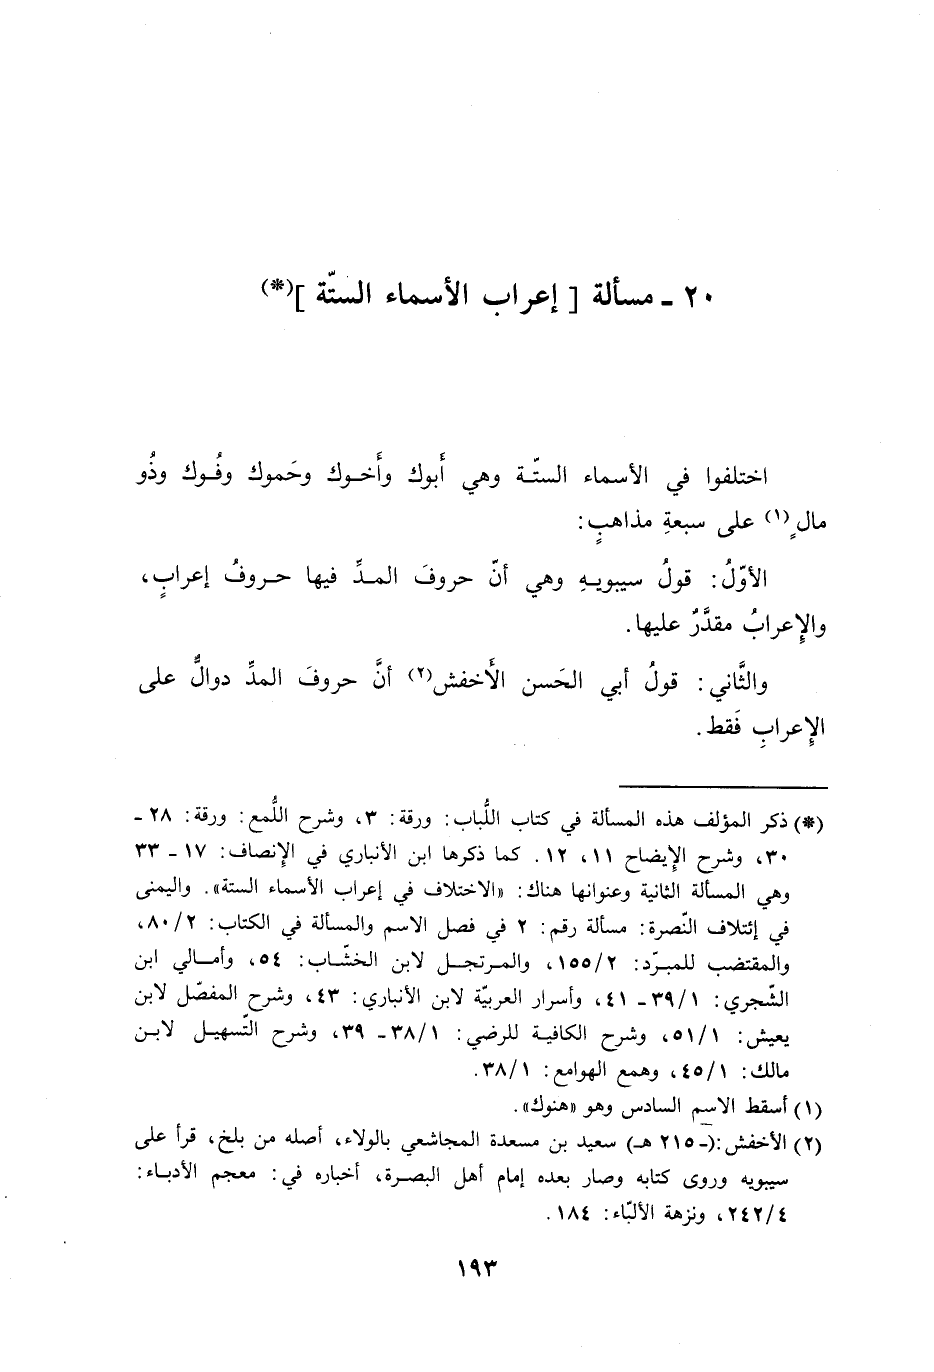 ٢٠ - مسألة [ إعراب الأسماء الستّة ](*)
اختلفوا في الأسماء الستّـة وهي أَبوك وأَخـوك وحَموك وفُـوك وذُو
مالٍ(١) على سبعةِ مذاهبٍ:
الأوّلُ: قولُ سيبويـهِ وهي أنّ حروفَ المـدِّ فيها حـروفُ إعرابٍ،
والإِعرابُ مقدَّرٌ عليها.
والثَّاني: قولُ أبي الحَسن الأَخفش(٢) أنَّ حروفَ المدِّ دوالٌّ على
الإِعرابِ فَقط.
(*) ذكر المؤلف هذه المسألة في كتاب اللُّباب: ورقة: ٣، وشرح اللُّمع: ورقة: ٢٨ -
٣٠، وشرح الإيضاح ١١، ١٢. كما ذكرها ابن الأنباري في الإنصاف: ١٧ - ٣٣
وهي المسألة الثانية وعنوانها هناك: «الاختلاف في إعراب الأسماء الستة». واليمنى
في إئتلاف النّصرة: مسألة رقم: ٢ في فصل الاسم والمسألة في الكتاب: ٨٠/٢،
والمقتضب للمبـرّد: ١٥٥/٢، والمـرتجـل لابن الخشّـاب: ٥٤، وأمـالي ابن
الشّجري: ٣٩/١ - ٤١، وأسرار العربيّة لابن الأنباري: ٤٣، وشرح المفصّل لابن
يعيش: ٥١/١، وشرح الكافيـة للرضي: ٣٨/١ - ٣٩، وشرح التّسهيـل لابـن
مالك: ٤٥/١، وهمع الهوامع: ٣٨/١.
(١) أسقط الاسم السادس وهو «هنوك».
(٢) الأخفش:(- ٢١٥ هـ) سعيد بن مسعدة المجاشعي بالولاء، أصله من بلخ، قرأ على
سيبويه وروى كتابه وصار بعده إمام أهل البصـرة، أخباره في: معجم الأدبـاء:
٢٤٢/٤، ونزهة الألبّاء: ١٨٤.
١٩٣